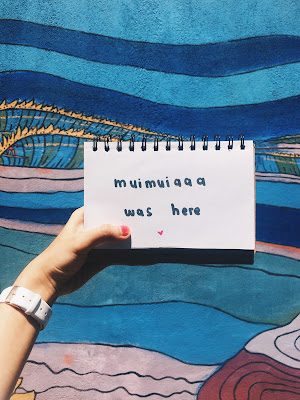 muimuiaaa
was here